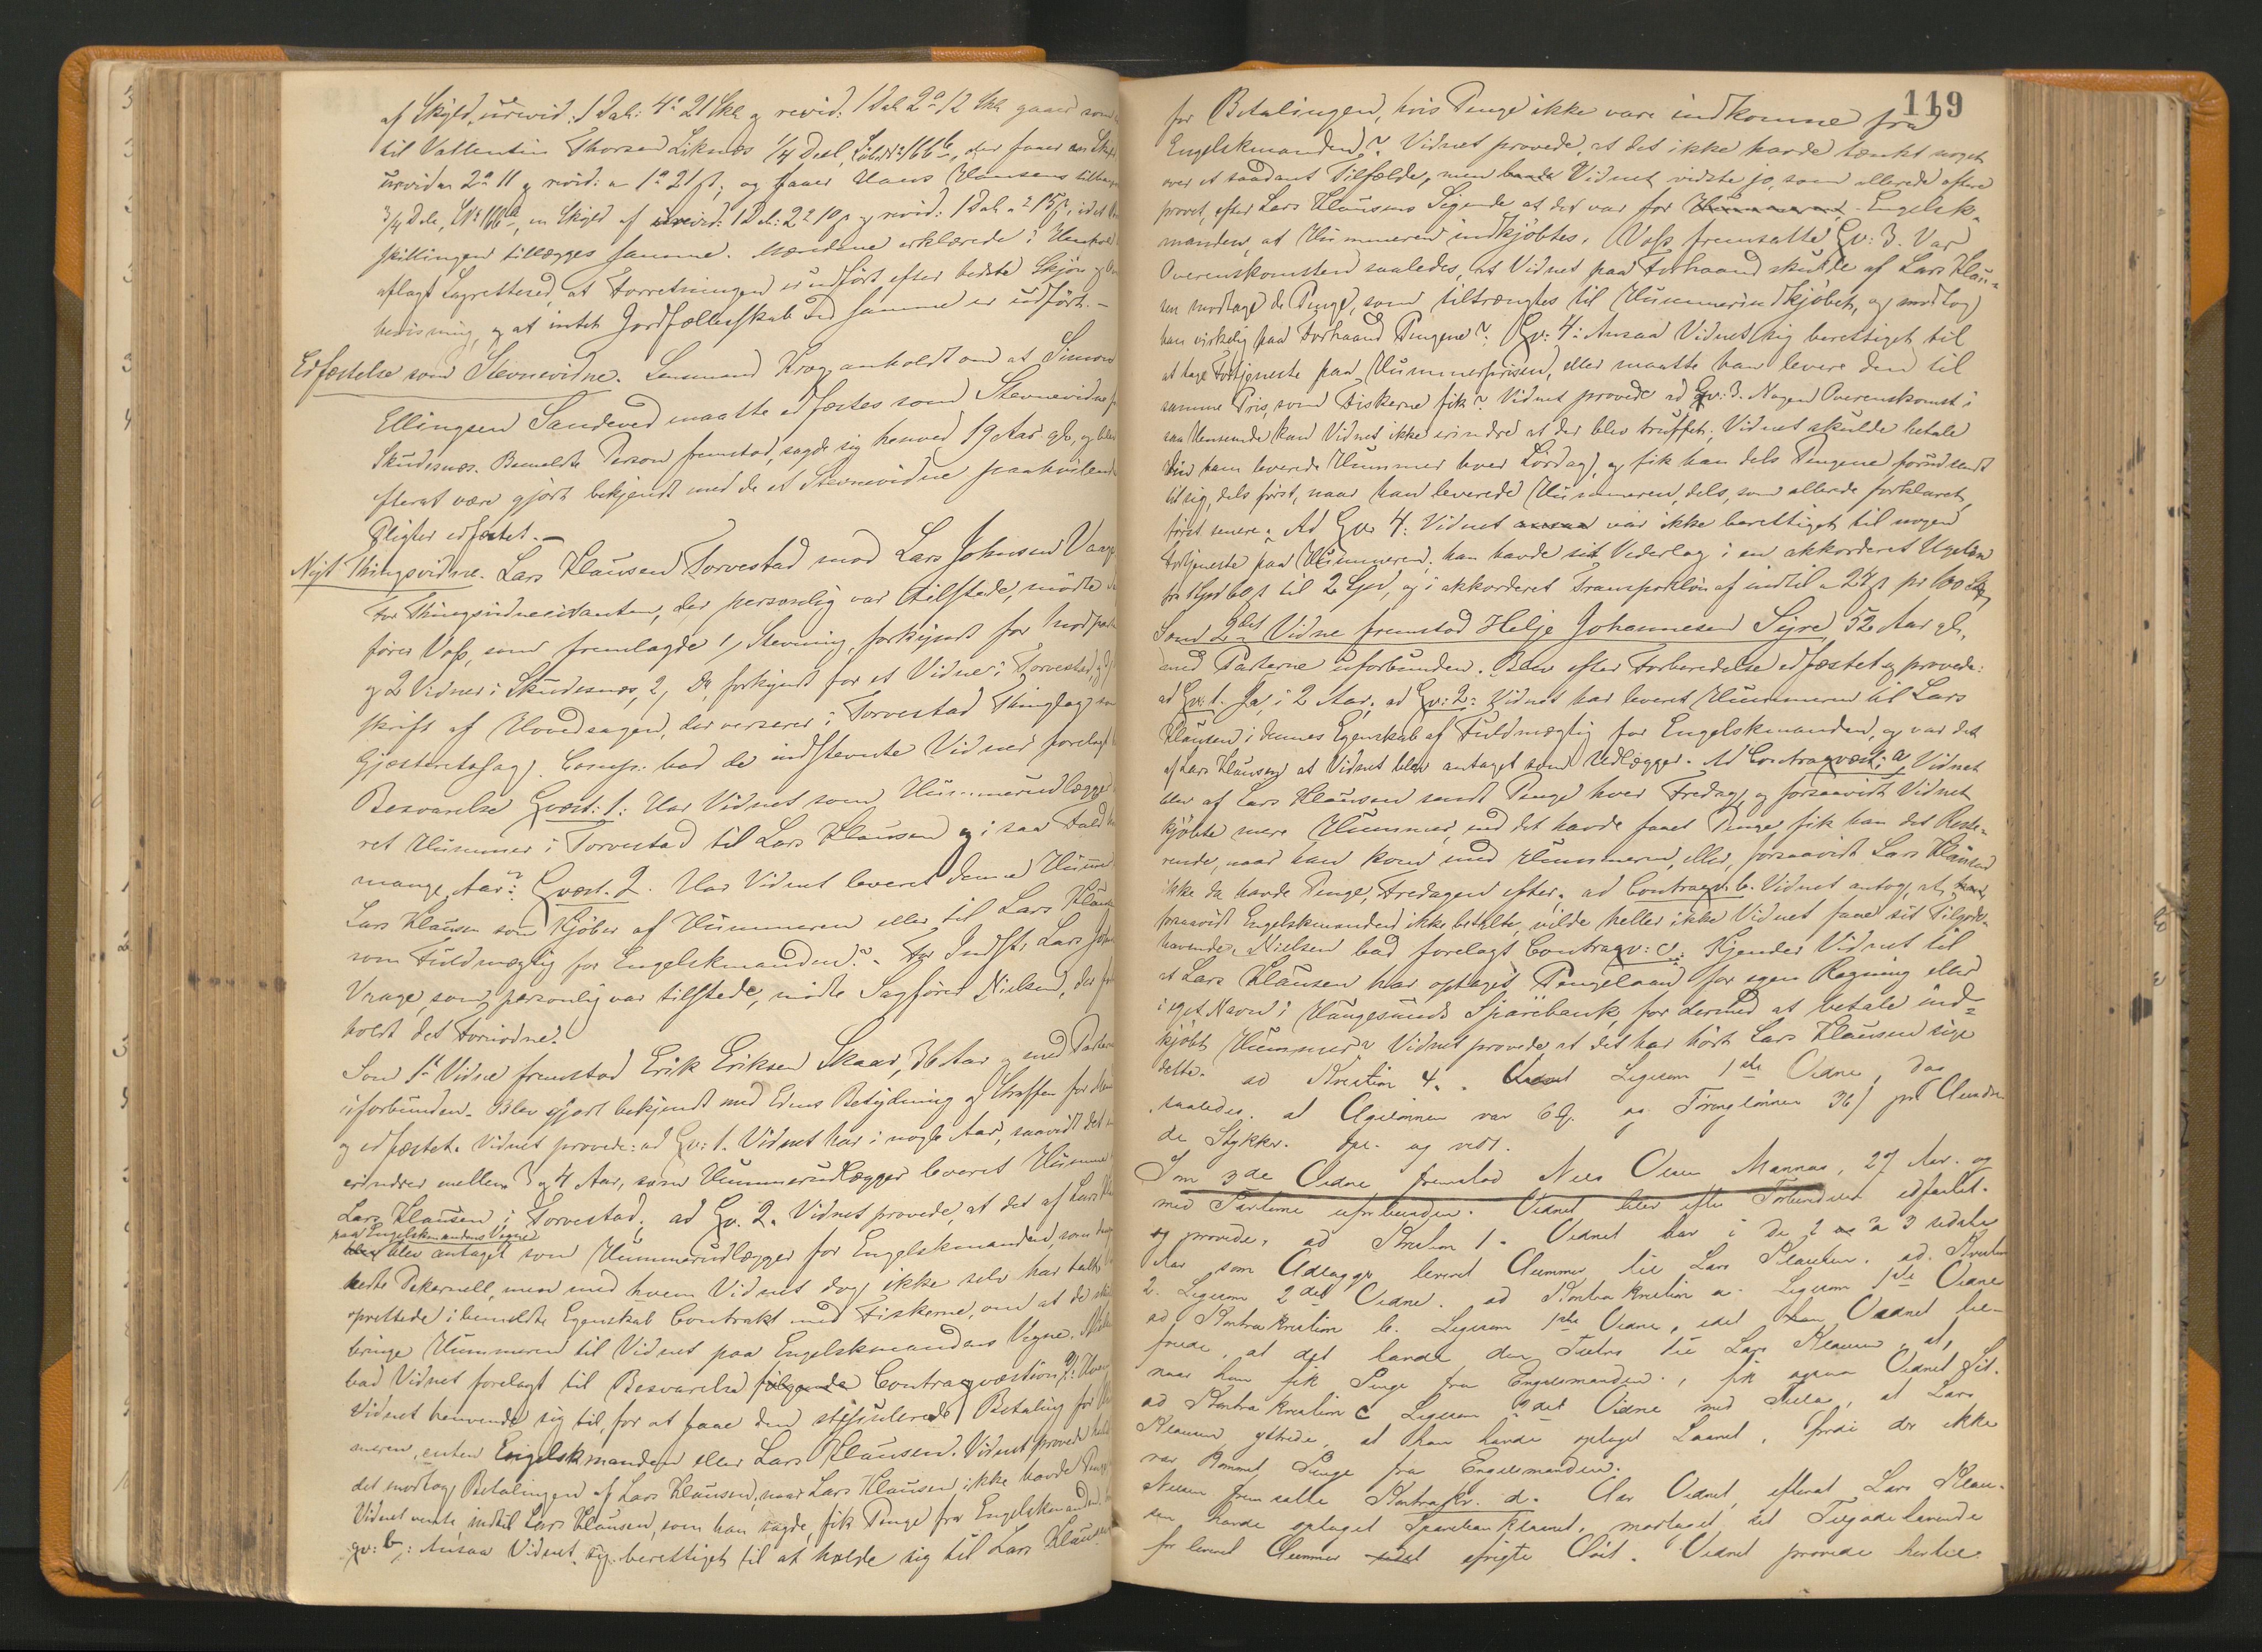 af Skyld urevid: 1 Dal: 4 21 Skl. og revid: 1 Dal 2 12 Skl. gaaer
til Vallentin Thorsen Liknæs 1/4 Deel, Løbe № 166b, der faaer en
urevideret 2 11 og revid: 1 21 ß; og faaer Hans Hansens
3/4 Dele, 166a, en Skyld af urevid: 1 Dal: 2 10 ß og revid: 1 Dal 15 ß, idet
skillingen tillægges samme. Mændene erklærede i Henhold
aflagt Lagretteed, at Forretningen er udført efter bedste Skjøn og
bevisning, og at intet Jordfælledsskab ved samme er udført.-
Edfæstelse som Stevnevidne. Lensmand Krog anholdt om at Simon
Ellingsen Sandeved maatte edfæstes som Stevnevidne
Skudesnæs. Bemeldte Person fremstod, sagde sig henved 19 Aar gl., og blev
efterat være gjort bekjendt med de et Stevnevidne paahvilende
Pligter edfæstet.-
Nyt Thingsvidne. Lars Klausen Torvestad mod Lars Johnsen
For Thingsvidnecitanten, der personlig var tilstede, mødte
fører Voss, som fremlagde 1, Stevning, forkyndt for
og 2 Vidner i Skudesnæs, 2, Do, forkyndt for et Vidne i Torvestad,
skrift af Hovedsagen, der verserer i Torvestad Thinglag som
Gjæsteretssag. Comp. bad de indstevnte Vidner forelagt
Besvarelse Qvæst: 1: Har Vidnet som Hummerudlægger
ret Hummer i Torvestad til Lars Klausen og i saa Fald
mange Aar? Qvæst. 2. Har Vidnet leveret denne Hummer
Lars Klausen som Kjøber af Hummeren eller til Lars Klausen
som Fuldmægtig for Engelskmanden? For Indst. Lars
Vaage, som personlig var tilstede, mødte Sagfører Nielsen, der
holdt det Fornødne.
Som 1te Vidne fremstod Erik Eriksen Skaar, 36 Aar og med Parterne
uforbunden. Blev gjort bekjendt med Edens Betydning og Straffen for
og edfæstet. Vidnet provede: ad Qv: 1. Vidnet har i nogle Aar, saavidt det
erindrer mellem 3 og 4 Aar, som Hummerudlægger leveret Hummer
Lars Klausen i Torvestad. ad Qv. 2. Vidnet provede, at det af Lars
paa Engelskmandens Vegne
blev antaget som Hummerudlægger for Engelskmanden, som
hedte Pekarnell, men med hvem Vidnet dog ikke selv har talt
oprettede i bemeldte Egenskab Contrakt med Fiskerne, om at de
bringe Hummeren til Vidnet paa Engelskmandens Vegne.
bad Vidnet forelagt til Besvarelse følgende Contraqvæstion a:
Vidnet henvende sig til, for at faae den stipulerede Betaling for
meren, enten Engelskmanden eller Lars Klausen. Vidnet provede
det modtog Betalingen af Lars Klausen, naar Lars Klausen ikke havde Penge
Vidnet vente, indtil Lars Klausen, som han sagde, fik Penge fra Engelskmanden.
qv: b: Ansaa Vidnet sig berettiget til at holde sig til Lars Klausen
119
for Betalingen, hvis Penge ikke vare indkomne fra
Engelskmanden? Vidnet provede, at det ikke havde tænkt noget
over et saadant Tilfælde, men Vidnet vidste jo, som allerede oftere
provet, efter Lars Klausens Sigende at det var for Engelsk-
manden, at Hummeren indkjøbtes. Voss fremsatte Qv: 3. Var
Overenskomsten saaledes, at Vidnet paa Forhaand skulde af Lars Klau-
sen modtage de Penge, som tiltrængtes til Hummerindkjøbet, og modtog
han virkelig paa Forhaand Pengene? Qv: 4: Ansaa Vidnet sig berettiget til
at tage Fortjeneste paa Hummerprisen, eller maatte han levere den til
samme Pris, som Fiskerne fik? Vidnet provede ad Qv: 3. Nogen Overenskomst i
saa Henseende kan Vidnet ikke erindre at der blev truffet; Vidnet skulde betale
den ham leverede Hummer hver Lørdag, og fik han dels Pengene forudsendt
til sig, dels først, naar han leverede Hummeren, dels, som allerede forklaret,
først senere. Ad Qv: 4: Vidnet var ikke berettiget til nogen
Fortjeneste paa Hummeren; han havde sit Vederlag i en akkorderet Ugeløn
fra 1 Spd 60 ß til 2 Spd, og i akkorderet Transportløn af indtil 24 ß pr 100
Som 2det Vidne fremstod Helje Johannesen Syre, 52 Aar gl.,
med Parterne uforbunden. Blev efter Forberedelse edfæstet og provede:
ad Qv: 1. Ja, i 2 Aar. ad Qv: 2: Vidnet har leveret Hummeren til Lars
Klausen i dennes Egenskab af Fuldmægtig for Engelskmanden, og var det
af Lars Klausen at Vidnet blev antaget som Udlægger. Ad Contraqvæst: a, Vidnet
blev af Lars Klausen sendt Penge hver Fredag, og forsaavidt Vidnet
kjøbte mere Hummer, end det havde faaet Penge, fik han det Reste-
rende, naar han kom med Hummeren, eller, forsaavidt Lars Klausen
ikke da havde Penge, Fredagen efter. ad Contraqv. b. Vidnet antog, at
forsaavidt Engelskmanden ikke betalte, vilde heller ikke Vidnet faae sit Tilgode-
havende. Nielsen bad forelagt Contraqv: c. Kjender Vidnet til
at Lars Klausen har optaget Pengelaan for egen Regning eller
i eget Navn i Haugesunds Sparebank, for dermed at betale ind-
kjøbt Hummer? Vidnet provede at det har hørt Lars Klausen sige
dette. ad Kvestion 4. Ligesom 1ste Vidne, dog
saaledes. at Ugelønnen var 6 og Føringlønnen 36 ß pr. Hundre-
de Stykker. Opl. og vedt.
Som 3de Vidne fremstod Nils Olsen Mannæs, 27 Aar. og
med Parterne uforbunden. Vidnet blev efter Forberedelse edfæstet.
og provede. ad Kvestion 1. Vidnet har i de 2 a 3 sidste
Aar som Udlægger leveret Hummer til Lars Klausen. ad. Kvestion
2. Ligesom 2det Vidne. ad Kontrakvestion a. Ligesom 1ste Vidne
ad Kontrakvestion b. Ligesom 1ste Vidne, idet Vidnet til-
føiede, at det havde den Tiltro til Lars Klausen, at,
naar han fik Penge fra Engelskmanden, fik ogsaa Vidnet Sit.
ad Kontrakvestion c Ligesom 2det Vidne med Tillæg, at Lars
Klausen yttrede, at han havde optaget Laanet, fordi der ikke
var kommet Penge fra Engelsmanden.
Nielsen fremsatte Kontrakv. d. Har Vidnet, efterat Lars Klau-
sen havde optaget Sparebanklaanet, modtaget sit Tilgodehavende
for leveret Hummer afvigte Høst. Vidnet provede hertil